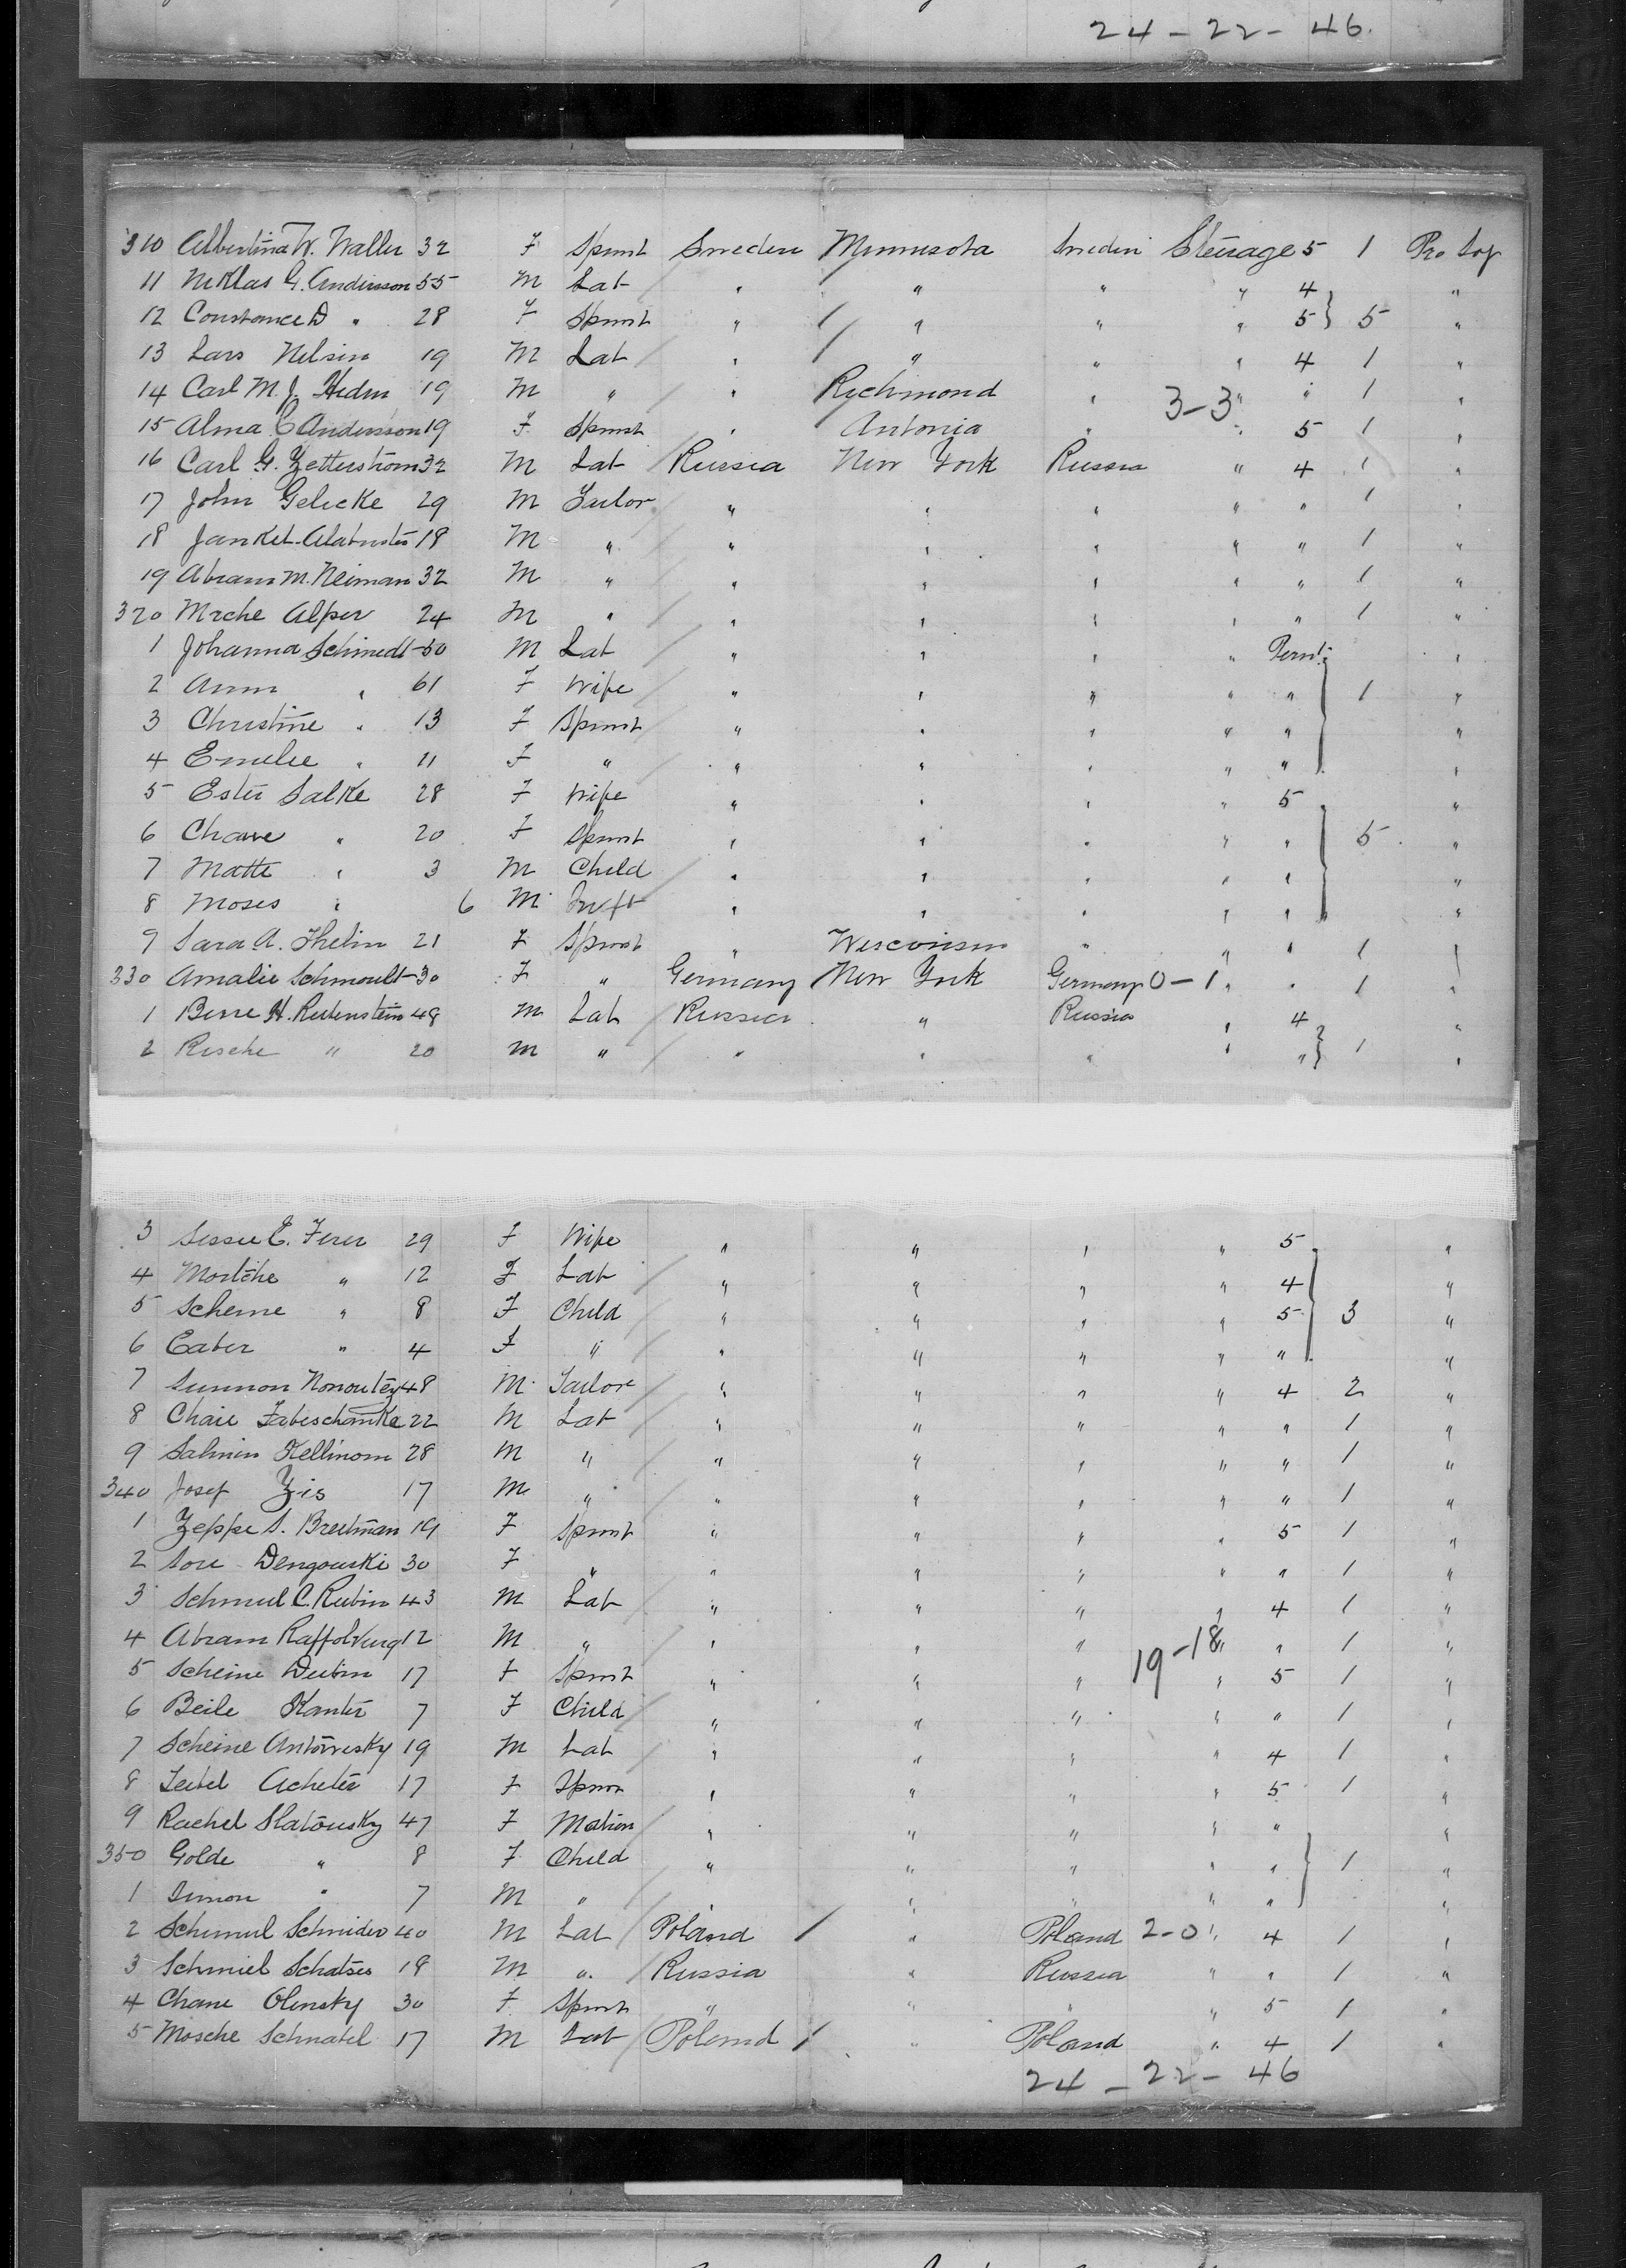 24 - 22 - 46.
310 Albertina W. Waller 32 F Spinst Sweden Minnesota Sweden Steerage 5 1 Pro Soj
11 Niklas G. Andersson 55 M Lab " " " " 4 "
12 Constance D " 28 F Spinst " " " " 5 5 "
13 Lars Nelsin 19 M Lab " " " " 4 1 "
14 Carl M. J. Hedin 19 M " " Richmond " 3-3 " " 1 "
15 Alma C Andersson 19 F Spinst " Antonia " " 5 1 "
16 Carl G. Zetterstrom 32 M Lab Russia New York Russia " 4 1 "
17 John Gelicke 29 M Tailor " " " " " 1 "
18 Jankel 18 M " " " " " " 1 "
19 Abram M. Neiman 32 M " " " " " " 1 "
320 Mrche Alper 24 M " " " " " " 1 "
1 Johanna Schmedt 50 M Lab " " " " "
2 Ann " 61 F Wife " " " " " 1 "
3 Christine " 13 F Spinst " " " " " "
4 Emelie " 11 F " " " " " " "
5 Ester Salke 28 F Wife " " " " 5 "
6 Chave " 20 F Spinst " " " " " 5 "
7 Matte " 3 M Child " " " " " "
8 Moses " 6 M Inft " " " " " "
9 Sara A. Thelin 21 F Spinst " Wisconsin " " " 1
330 Amalie Schmoult 30 F " Germany New York Germany 0-1 " " 1 "
1 Berre H. Rubenstein 48 M Lab Russia " Russia " 4 "
2 Rische " 20 M " " " " " " 1 "
3 Sessee E. Ferer 29 F Wife " " " " 5 "
4 Mortche " 12 F Lab " " " " 4 "
5 Scheme " 8 F Child " " " " 5 3 "
6 Eater " 4 F " " " " " " "
7 Summon 48 M Tailor " " " " 4 2 "
8 Chaie Fabeschanka 22 M Lab " " " " " 1 "
9 Salmin Kellinom 28 M " " " " " " 1 "
340 Josef Zis 17 M " " " " " " 1 "
1 Zeppe S. Breitman 19 F Spinst " " " " 5 1 "
2 Sore Dengouski 30 F " " " " " " 1 "
3 Schmul C. Rubin 43 M Lab " " " " 4 1 "
4 Abram 12 M " " " " 19-18 " " 1 "
5 Scheine Dubin 17 F Spinst " " " " 5 1 "
6 Beile Kanter 7 F Child " " " " " 1 "
7 Scheine Antowesky 19 M Lab " " " " 4 1 "
8 Teitel Acheter 17 F Spinst " " " " 5 1 "
9 Rachel Slatousky 47 F Matron " " " " " "
350 Golde " 8 F Child " " " " " 1 "
1 Simon " 7 M " " " " " " "
2 Schmul Schneider 40 M Lab Poland " Poland 2-0 " 4 1 "
3 Schmiel Schatses 18 M " Russia " Russia " " 1 "
4 Chane Olensky 30 F Spinst " " " " 5 1 "
5 Mosche Schnabel 17 M Lab Poland " Poland " 4 1 "
24 - 22 - 46